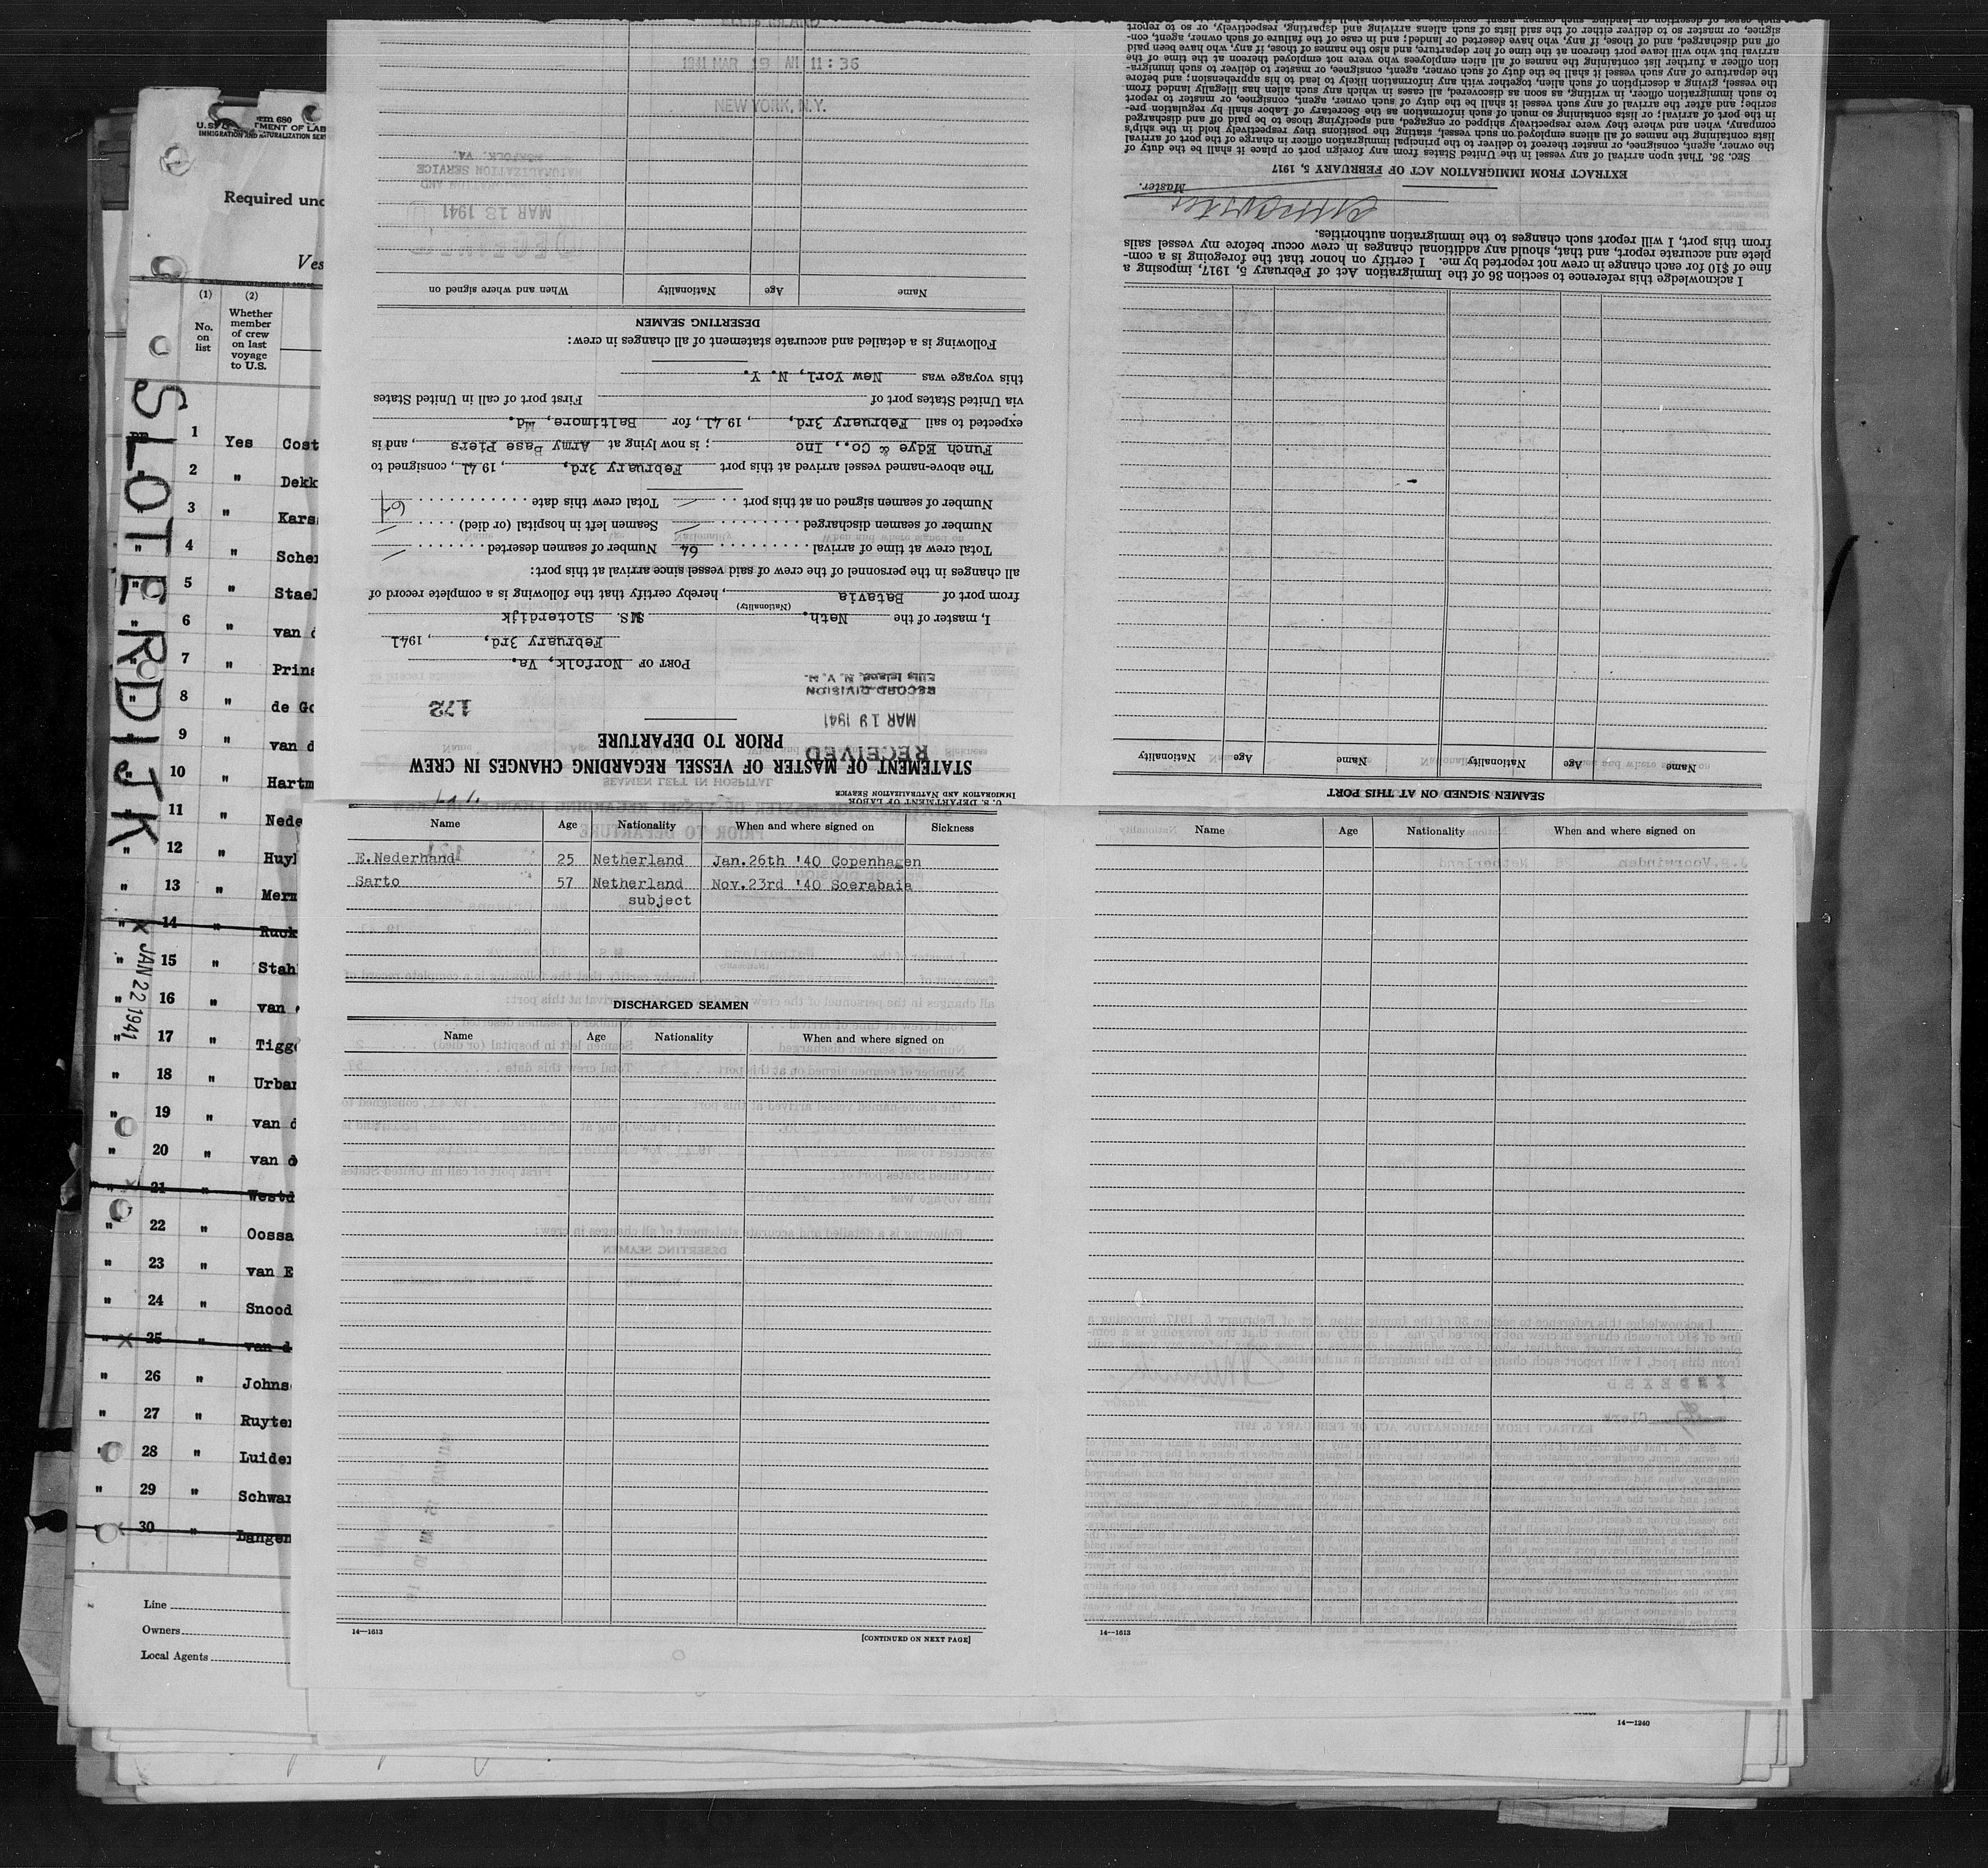 Form 680
U. S. DEPARTMENT OF LAB
IMMIGRATION AND NATURALIZATION SER
Required und
Ves
(1)
(2)
No.
on
list
Whether
member
of crew
on last
voyage
to U.S.
SLOTERDIJK
1 Yes Cost
2 " Dekk
3 " Kars
4 " Sche
5 " Stael
6 " van d
7 " Prins
8 " de Go
9 " van d
10 " Hartm
11 " Nede
12 " Huyl
13 " Merm
14 " Ruck
15 " Stah
16 " van
17 " Tigg
18 " Urban
19 " van d
20 " van d
21 " Westd
22 " Oossa
23 " van E
24 " Snood
25 " van d
26 " Johns
27 " Ruyter
28 " Luider
29 " Schwar
30 " Langen
JAN 22 1941
Line
Owners
Local Agents
U. S. DEPARTMENT OF LABOR
IMMIGRATION AND NATURALIZATION SERVICE
STATEMENT OF MASTER OF VESSEL REGARDING CHANGES IN CREW
PRIOR TO DEPARTURE
RECEIVED
MAR 19 1941
RECORD DIVISION
Ellis Island, N. Y. H.
172
PORT OF Norfolk, Va.
February 3rd, , 1941
I, master of the Neth. MS. Sloterdijk
(Nationality)
from port of Batavia , hereby certify that the following is a complete record of
all changes in the personnel of the crew of said vessel since arrival at this port:
Total crew at time of arrival 64 Number of seamen deserted /
Number of seamen discharged / Seamen left in hospital (or died) /
Number of seamen signed on at this port / Total crew this date 64
The above-named vessel arrived at this port February 3rd, , 1941, consigned to
Funch Edye & Co., Inc ; is now lying at Army Base Piers , and is
expected to sail February 3rd, , 1941, for Baltimore, Md.
via United States port of First port of call in United States
this voyage was New Yorl, N. Y.
Following is a detailed and accurate statement of all changes in crew:
DESERTING SEAMEN
Name Age Nationality When and where signed on
MAR 13 1941
NATURALIZATION SERVICE
NORFOLK, VA.
NEW YORK, N.Y.
1941 MAR 19 AM 11:36
SEAMEN SIGNED ON AT THIS PORT
Name Age Nationality Name Age Nationality
I acknowledge this reference to section 36 of the Immigration Act of February 5, 1917, imposing a
fine of $10 for each change in crew not reported by me. I certify on honor that the foregoing is a com-
plete and accurate report, and that, should any additional changes in crew occur before my vessel sails
from this port, I will report such changes to the immigration authorities.
Master.
EXTRACT FROM IMMIGRATION ACT OF FEBRUARY 5, 1917
SEC. 36. That upon arrival of any vessel in the United States from any foreign port or place it shall be the duty of
the owner, agent, consignee, or master thereof to deliver to the principal immigration officer in charge of the port of arrival
lists containing the names of all aliens employed on such vessel, stating the positions they respectively hold in the ship's
company, when and where they were respectively shipped or engaged, and specifying those to be paid off and discharged
in the port of arrival; or lists containing so much of such information as the Secretary of Labor shall by regulation pre-
scribe; and after the arrival of any such vessel it shall be the duty of such owner, agent, consignee, or master to report
to such immigration officer, in writing, as soon as discovered, all cases in which any such alien has illegally landed from
the vessel, giving a description of such alien, together with any information likely to lead to his apprehension; and before
the departure of any such vessel it shall be the duty of such owner, agent, consignee, or master to deliver to such immigra-
tion officer a further list containing the names of all alien employees who were not employed thereon at the time of the
arrival but who will leave port thereon at the time of her departure, and also the names of those, if any, who have been paid
off and discharged, and of those, if any, who have deserted or landed; and in case of the failure of such owner, agent, con-
signee, or master so to deliver either of the said lists of such aliens arriving and departing, respectively, or so to report
such cases of desertion or landing, such owner, agent, consignee, or master shall
Name Age Nationality When and where signed on Sickness
E.Nederhand 25 Netherland Jan.26th '40 Copenhagen
Sarto 57 Netherland Nov.23rd '40 Soerabaia
subject
DISCHARGED SEAMEN
Name Age Nationality When and where signed on
14—1613
[CONTINUED ON NEXT PAGE]
Name Age Nationality When and where signed on
14—1613
14—1240